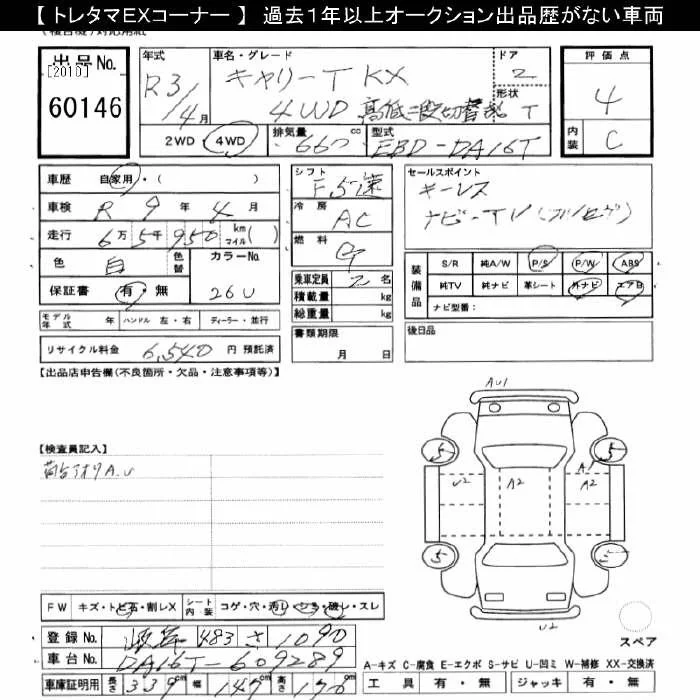 【 トレタマEXコーナー 】 過去1年以上オークション出品歴がない車両
出品No.
[2010]
60146
年式
R3/4月
車名・グレード
キャリーT KX
4WD 高低二段切替 T
ドア
2
形状
2WD・4WD
排気量
660 cc
型式
EBD-DA16T
評価点
4
内装
C
車歴 自家用・( )
車検 R 9年 4月
走行 6万5千950 km マイル( )
色 白 色替
カラーNo.
26U
保証書 有・無
モデル年式 年 ハンドル 左・右 ディーラー・並行
リサイクル料金 6,540 円 預託済
シフト
F5速
冷房
AC
燃料
G
乗車定員 2 名
積載量 kg
総重量 kg
書類期限
月 日
セールスポイント
キーレス
ナビーTV(フルセグ)
装備品
S/R 純A/W P/S P/W ABS
純TV 純ナビ 革シート 外ナビ エアB
ナビ型番:
後日品
【出品店申告欄(不良箇所・欠品・注意事項等)】
【検査員記入】
荷台アオリA.U
AU1
5 5
U2 A2 A1
A2
5 5
U2
スペア
FW キズ・トビ石・割レX
シート内装 コゲ・穴・汚レ・シミ・破レ・スレ
登録No. 岐阜 483 さ 1090
車台No. DA16T-609289
車庫証明用 長さ 339 幅 147 高さ 176
A-キズ C-腐食 E-エクボ S-サビ U-凹ミ W-補修 XX-交換済
工具 有・無 ジャッキ 有・無